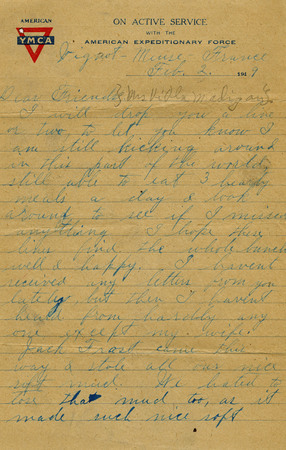 AMERICAN
YMCA
ON ACTIVE SERVICE
WITH THE
AMERICAN EXPEDITIONARY FORCE
Vignot - Meuse, France
Feb. 2, 1919
Dear Friends
I will drop you a line
or two to let you know I
am still kicking around
in this part of the world
still able to eat 3 hearty
meals a day & look
around to see if I missed
anything. I hope these
lines find the whole bunch
well & happy. I havent
received any letters from you
lately, but then I havent
heard from hardly any
one except my wife.
Jack Frost came this
way & stole all our nice
soft mud. We hated to
lose that mud too, as it
made such nice soft